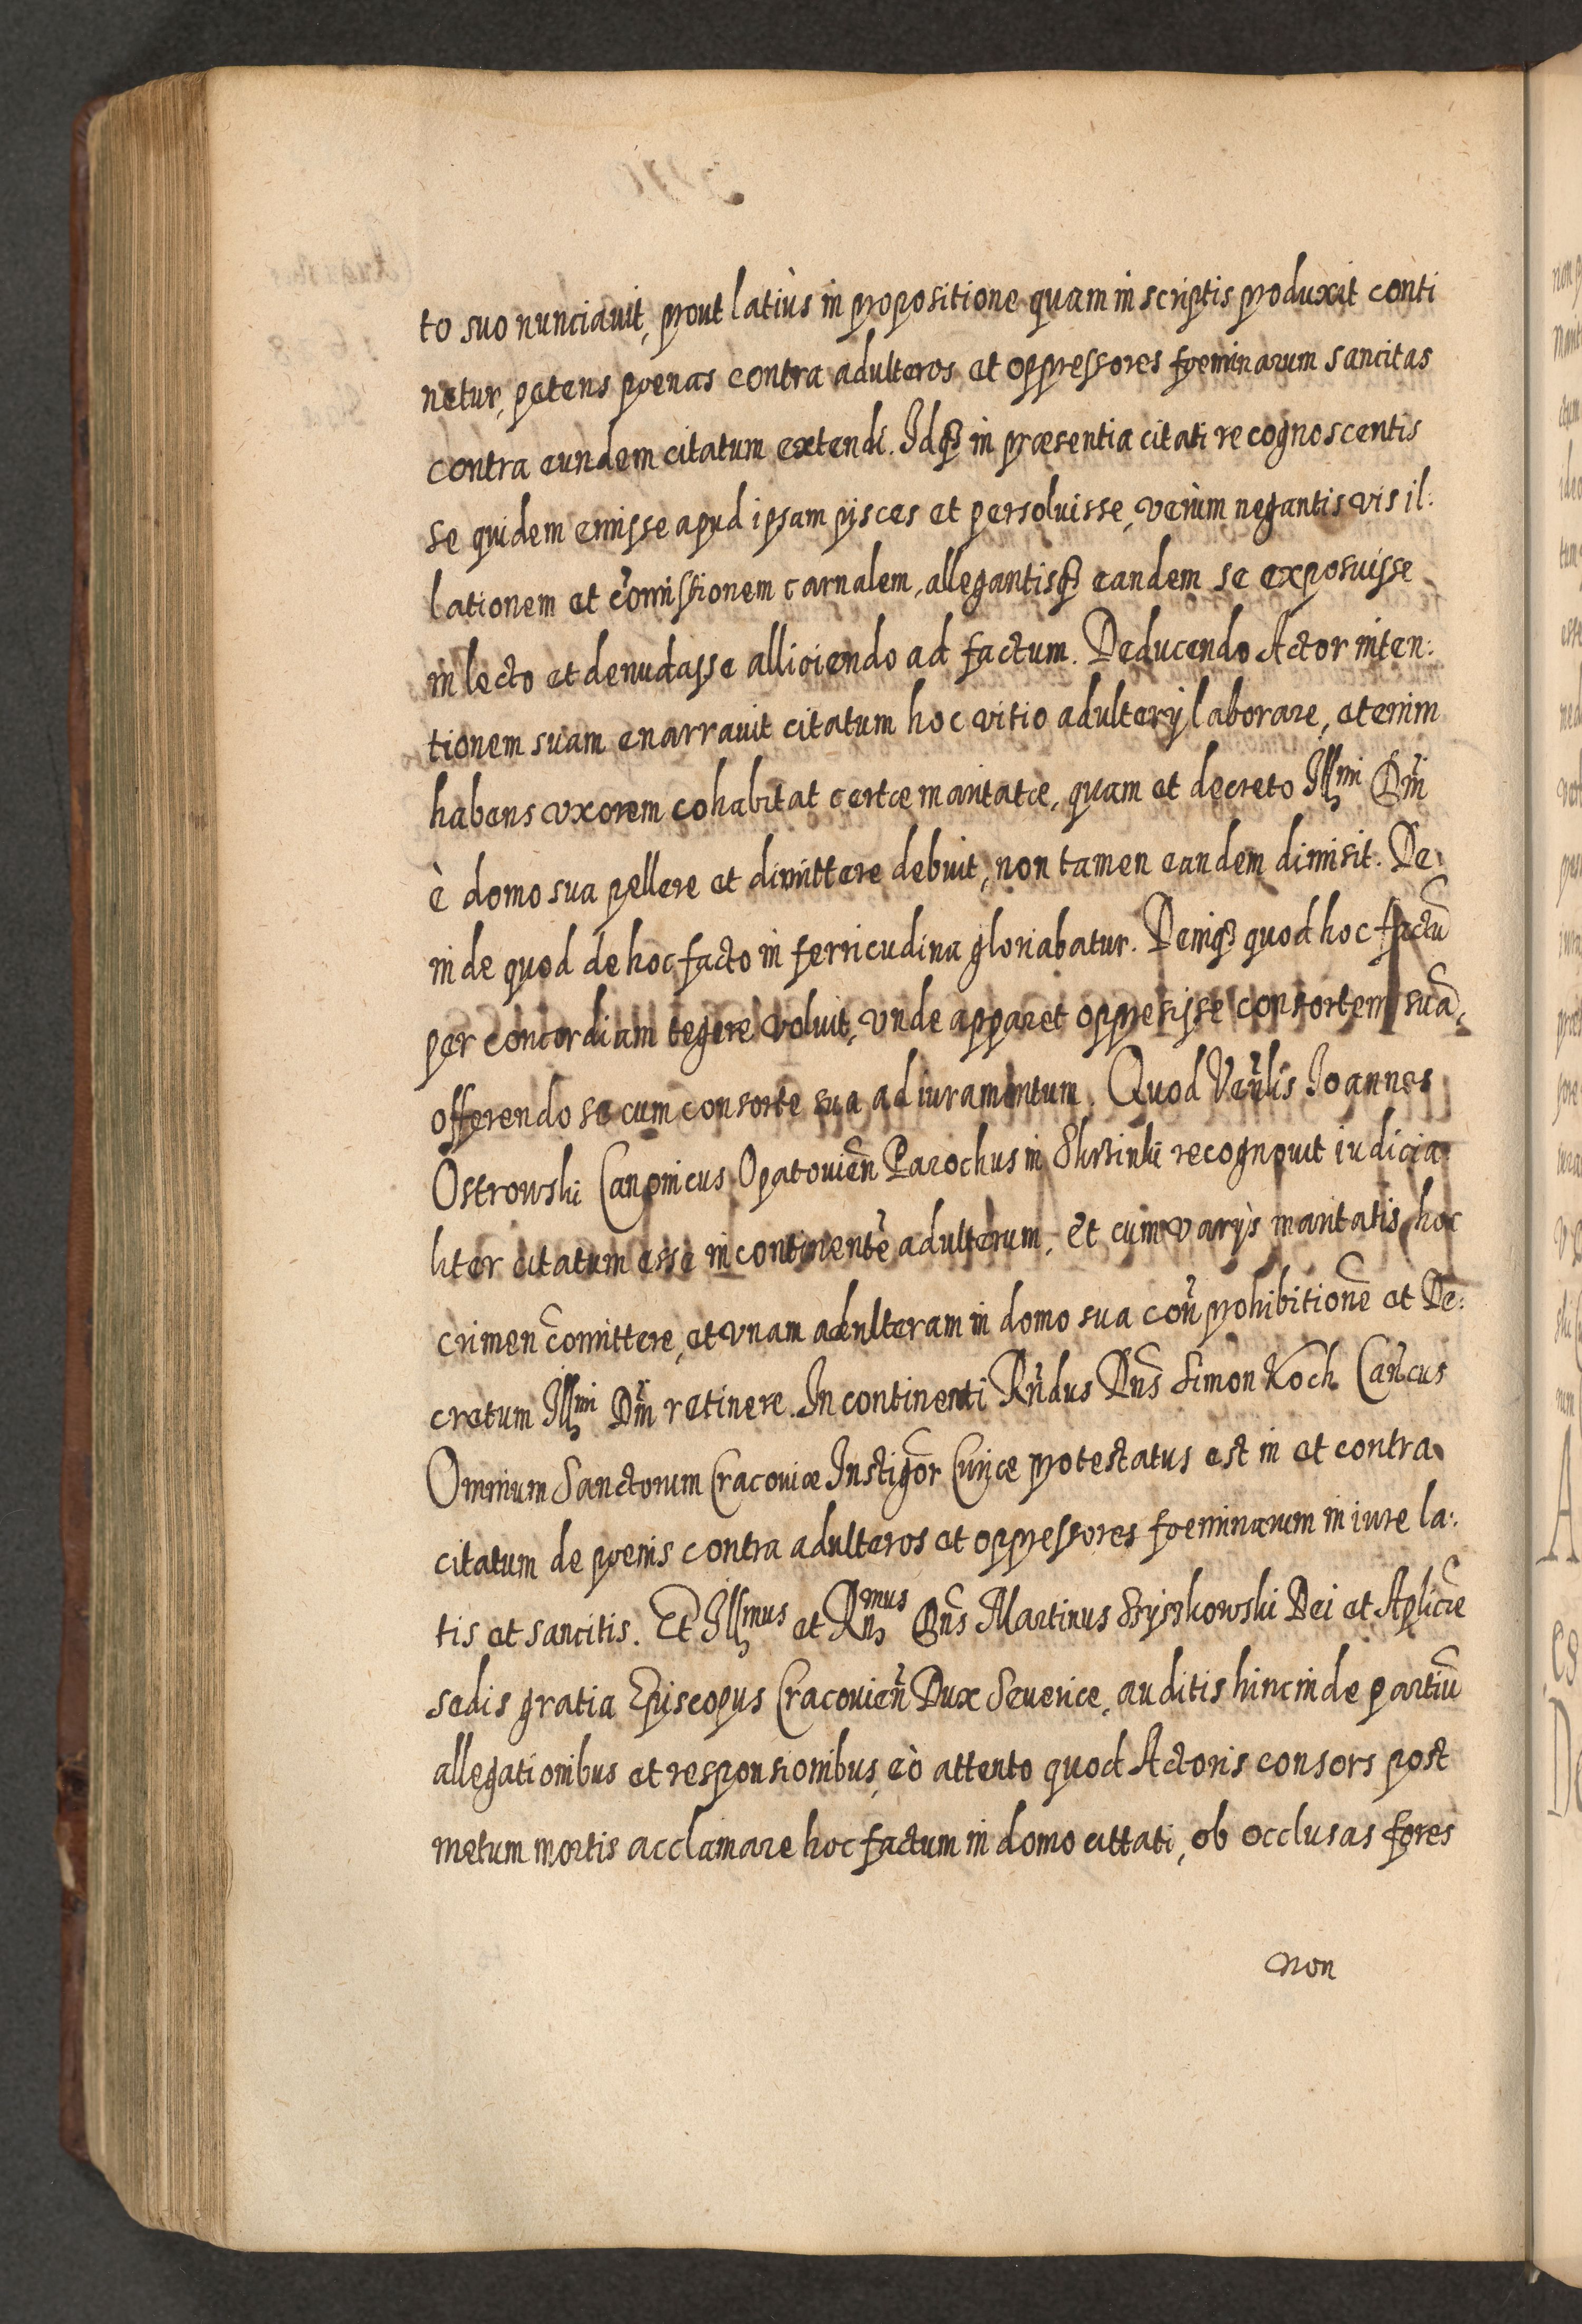 to suo nunciauit, prout latiùs in propositione quam in scriptis produxit conti
netur, petens poenas contra adulteros et oppressores foeminarum sancitas
contra eundem citatum extendi. Idq3 in præsentia citati recognoscentis
se quidem emisse apud ipsam pisces et persoluisse, verùm negantis vis il:
lationem et com̃istionem carnalem, allegantisq3 eandem se exposuisse
in lecto et denudasse alliciendo ad factum. Deducendo Actor inten:
tionem suam enarrauit citatum hoc vitio adulterij laborare, etenim
habens vxorem cohabitat certæ maritatæ, quam et decreto Illmi Dñi
è domo sua pellere et dimittere debuit, non tamen eandem dimisit. De
inde quod de hoc facto in ferricudina gloriabatur. Deniq3 quod hoc factũ
per concordiam tegere voluit, vnde apparet oppresisse consortem suã,
offerendo se cum consorte sua ad iuramentum. Quod Veñlis Ioannes
Ostrowski Canonicus Opatouieñ Parochus in Skrzinki recognouit iudicia
liter citatum esse incontinentẽ adulterum, et cum varijs maritatis hoc
crimen com̃ittere, et vnam adulteram in domo sua coñ prohibitionẽ et De:
cretum Illmi Dñi retinere. In continenti Rñdus Dñs Simon Koch Cañcus
Omnium Sanctorum Cracouiæ Instigõr Curiæ protestatus est in et contra
citatum de poenis contra adulteros et oppressores foeminarum in iure la:
tis et sancitis. Et Illmus et Rñmus Dñs Martinus Szyszkowski Dei et Aplicæ
sedis gratia Episcopus Cracouieñ Dux Seueriæ, auditis hinc inde partiũ
allegationibus et responsionibus, eò attento quod Actoris consors post
metum mortis acclamare hoc factum in domo cittati, ob occlusas fores
non